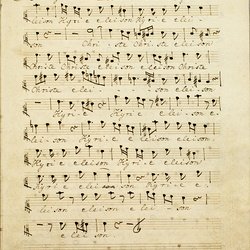 eleison Kyrie elei
son Christe Christe eleison
Christe Christe eleison Christe
Christe elei son eleison
Kyrie eleison Kyrie e
leison Kyrie eleison
Kyrie eleison Kyrie eleison
Kyrie eleison eleison e
leison eleison eleison
eleison